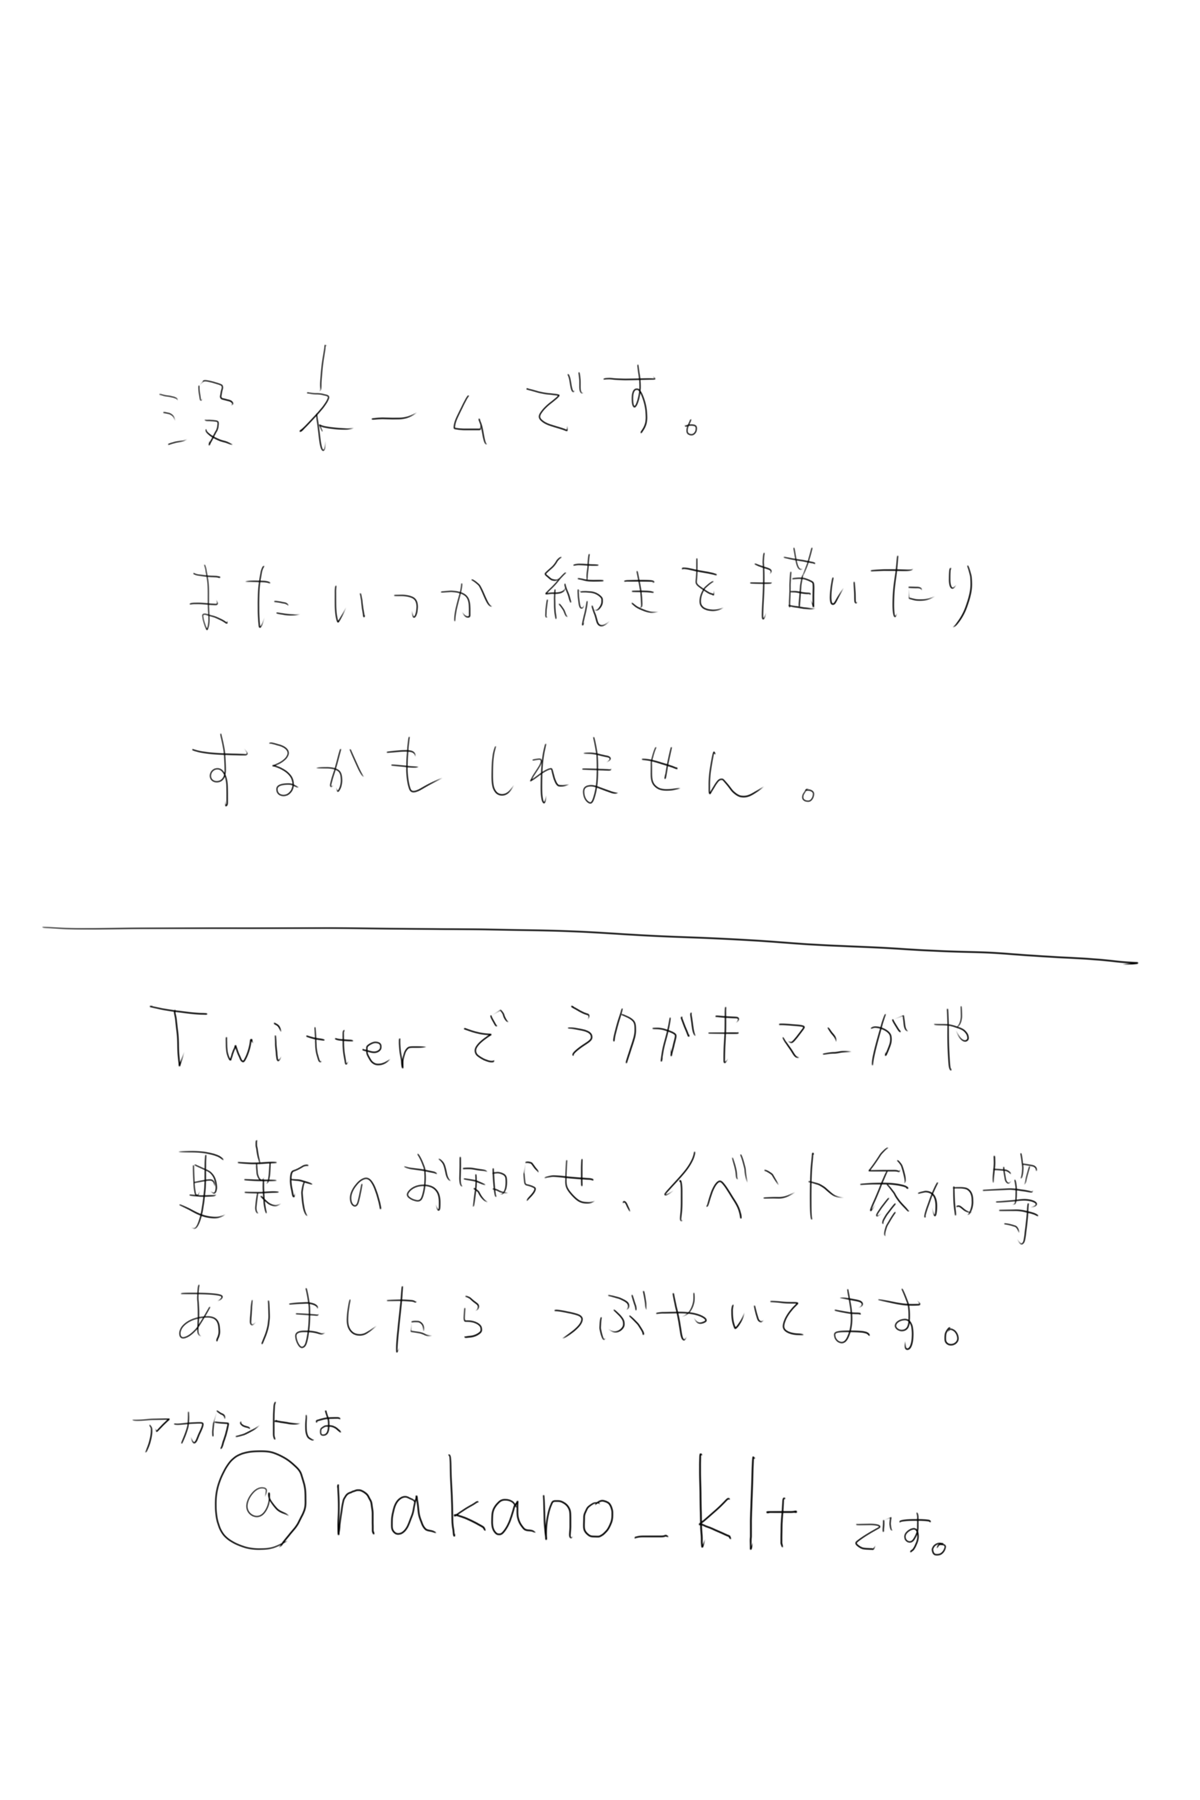 没ネームです。
またいつか続きを描いたり
するかもしれません。
Twitterでラクガキマンガや
更新のお知らせ、イベント参加等
ありましたらつぶやいてます。
アカウントは
@nakano_klt です。